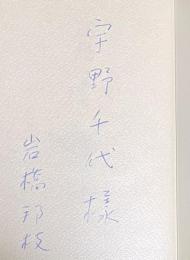 宇野千代様
岩橋邦枝